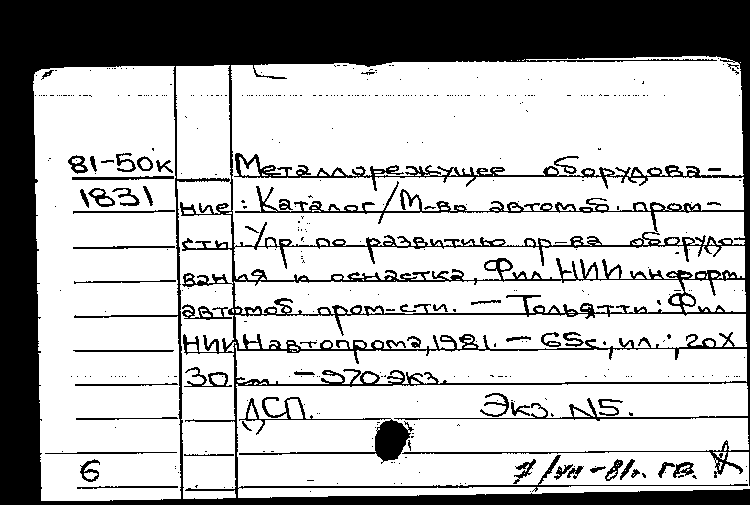 81-50к Металлорежущее оборудова-
1831 ние: Каталог/М-во автомоб. пром-
сти. Упр. по развитию пр-ва оборудо-
вания и оснастка, Фил. НИИинформ.
автомоб. пром-сти. — Тольятти: Фил.
НИИНавтопрома, 1981. — 65с., ил.; 20X
30 см. — 970 экз.
ДСП. Экз. N5.
6 7/VII-81г. ГВ.